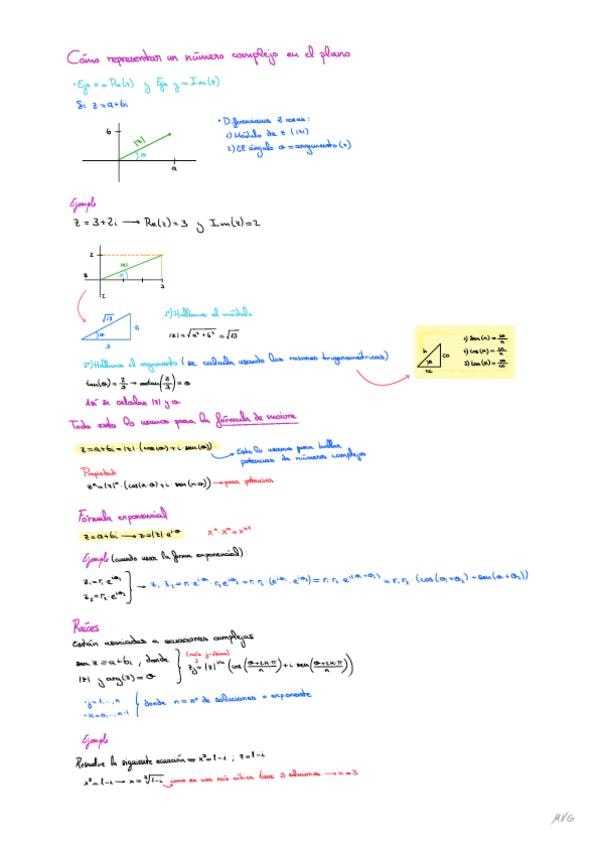 Cómo representar un número complejo en el plano
· Eje x = Re(z) y Eje y = Im(z)
Si z=a+bi
· Diferenciamos 2 cosas:
1) Módulo de z (|z|)
2) El ángulo θ = argumento(z)
b
|z|
θ
a
Ejemplo
z = 3+2i → Re(z)=3 y Im(z)=2
2
|z|
θ
3
√13
θ
3
1º) Hallamos el módulo
|z| = √a²+b² = √13
2º) Hallamos el argumento (se calcula usando las razones trigonométricas)
tan(θ) = 2/3 → arctan(2/3) = θ
Así se calculan |z| y θ
h
co
cc
1) sen(α) = co/h
2) cos(α) = cc/h
3) tan(α) = co/cc
Todo esto lo usamos para la fórmula de moivre
z=a+bi=|z|·(cos(θ)+i·sen(θ))
Esto lo usamos para hallar
potencias de números complejos
Propiedad
zⁿ=|z|ⁿ·(cos(n·θ)+i·sen(n·θ)) → para potencias
Fórmula exponencial
z=a+bi → z=|z|·e^iθ
Ejemplo (cuando usar la forma exponencial)
z₁=r₁·e^iθ₁
z₂=r₂·e^iθ₂
→ z₁·z₂=r₁·e^iθ₁·r₂·e^iθ₂=r₁·r₂·(e^iθ₁·e^iθ₂)=r₁·r₂·e^i(θ₁+θ₂)=r₁·r₂·(cos(θ₁+θ₂)-sen(θ₁+θ₂))
Raíces
Están asociadas a ecuaciones complejas
sea z=a+bi, donde
|z| y arg(z)=θ
(raíz j-ésima)
zj=|z|^1/n (cos(θ+2kπ/n)+i·sen(θ+2kπ/n))
·j=1,...,n
·k=0,...,n-1
donde n=nº de soluciones o exponente
Ejemplo
Resuelve la siguiente ecuación → x³=1-i ; z=1-i
x³=1-i → x=³√1-i
como es una raíz cúbica tiene 3 soluciones → n=3
MVG